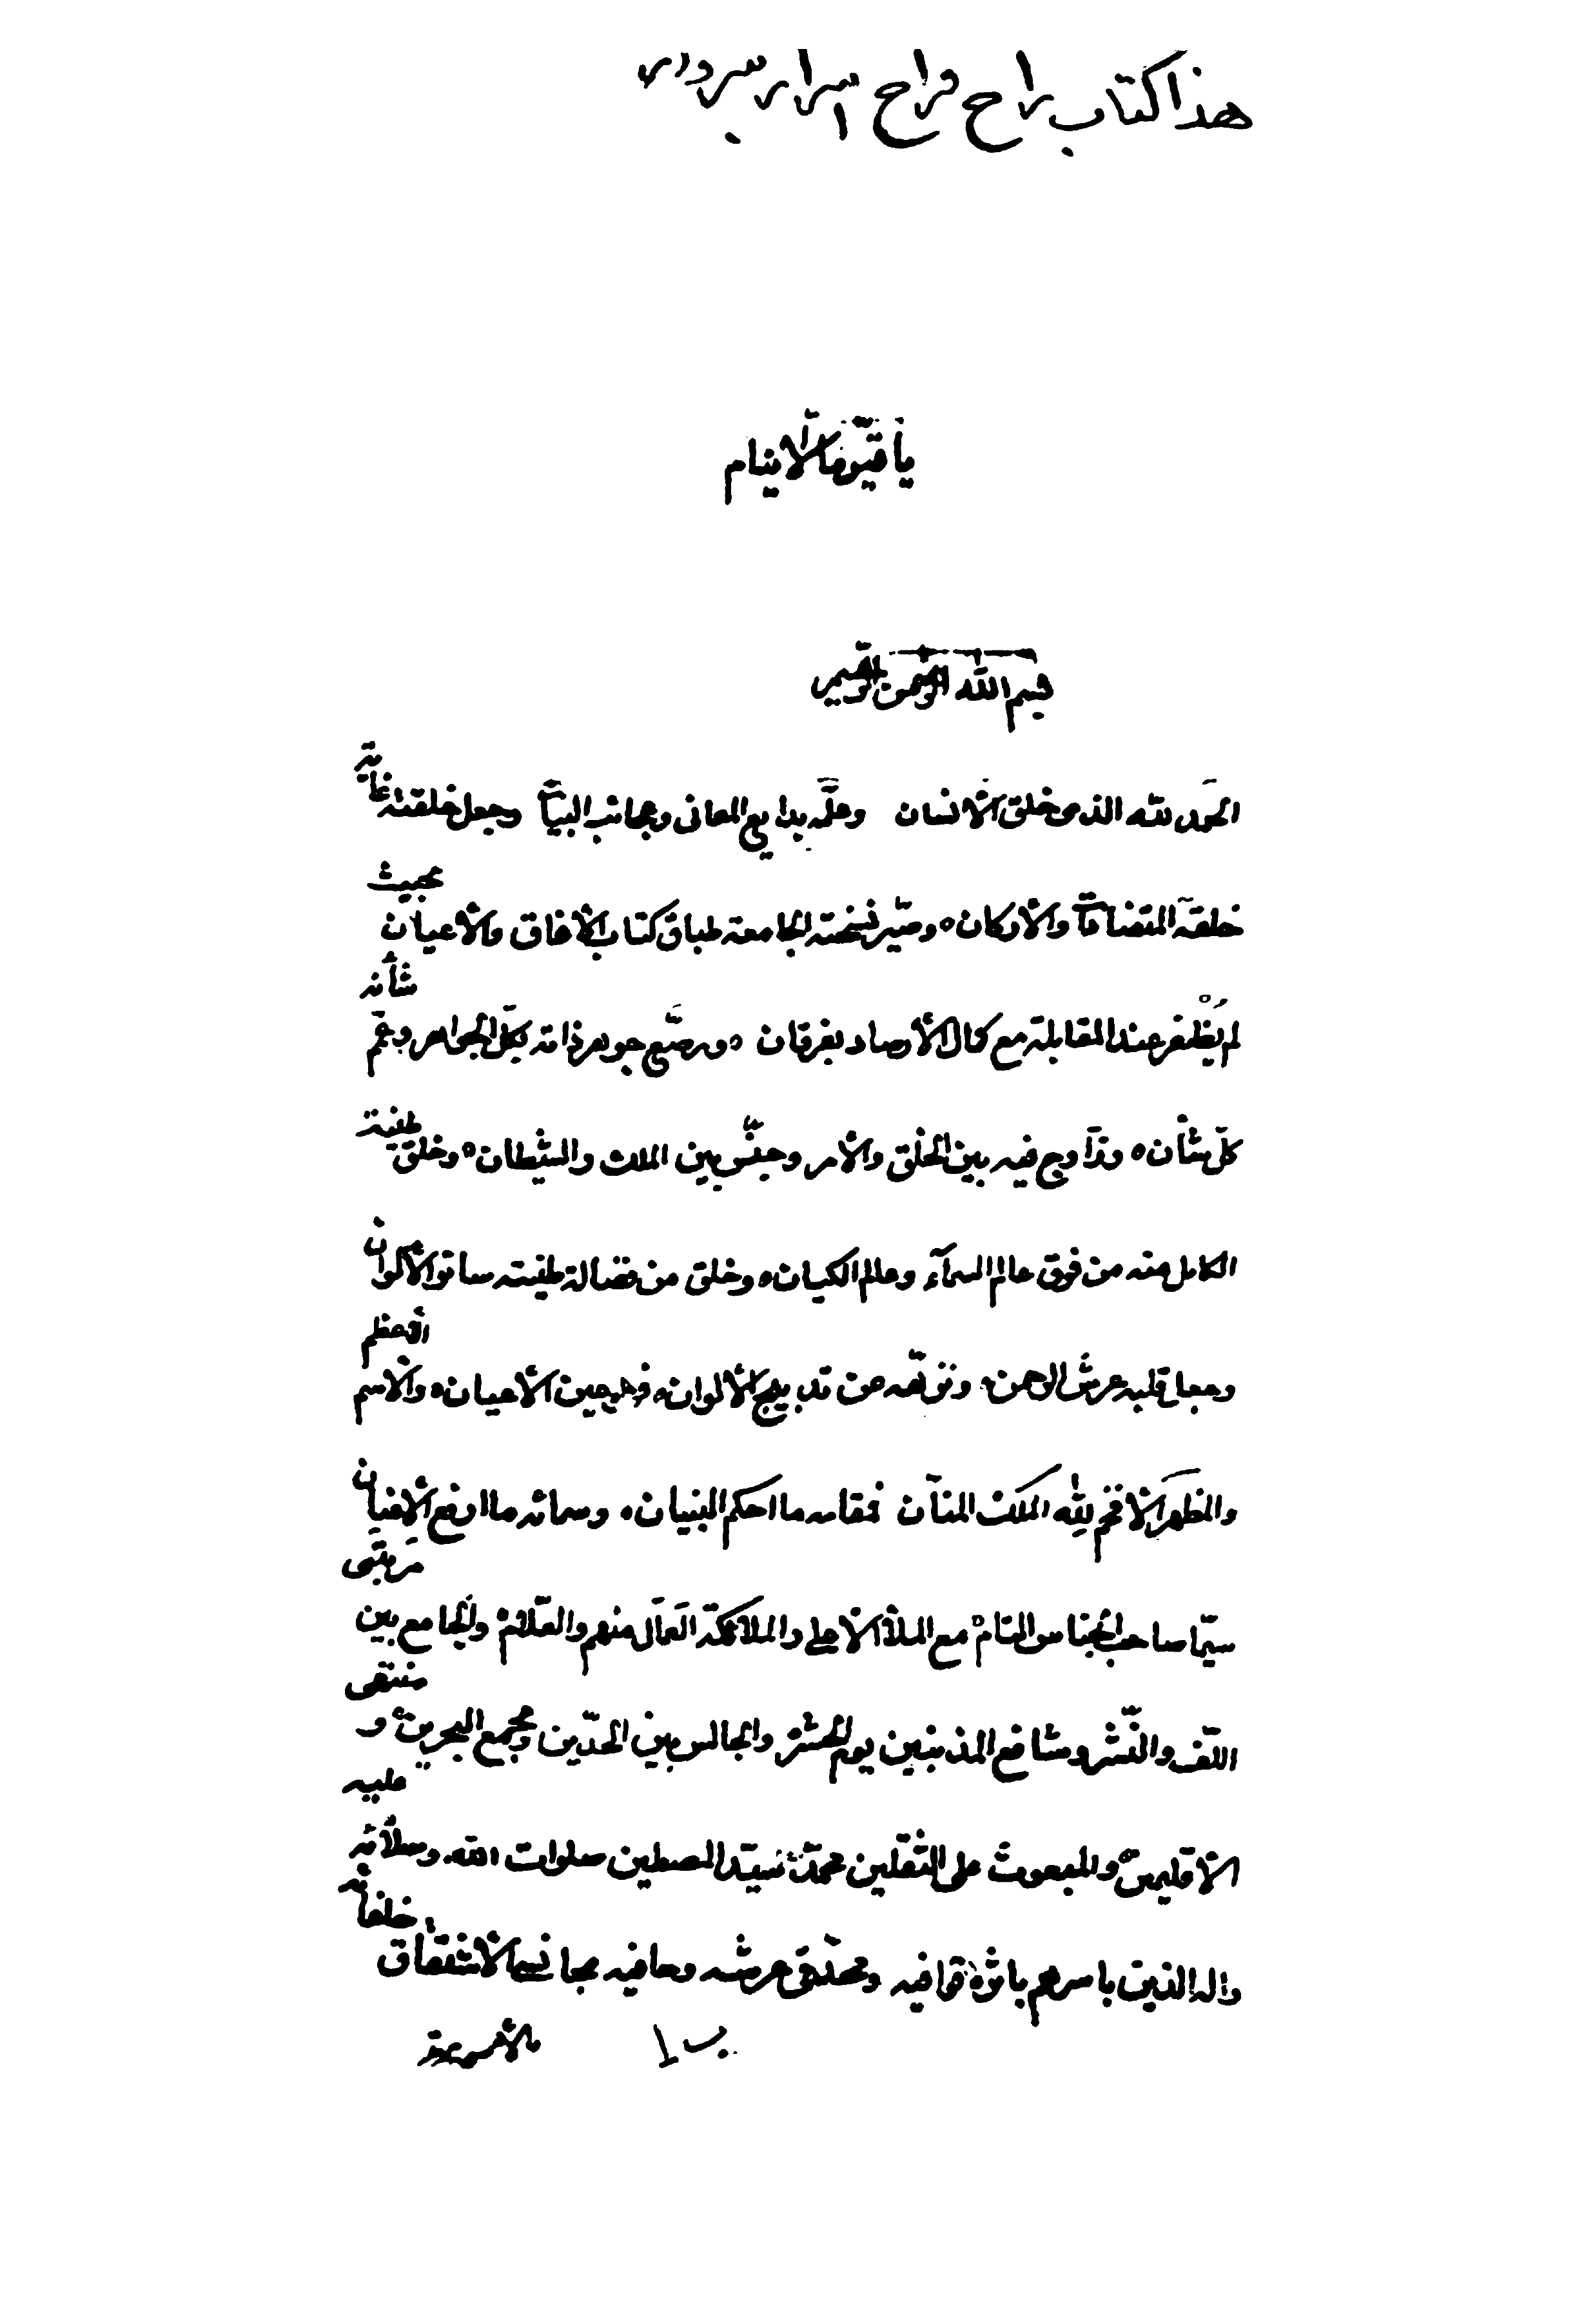 هذا كتاب راح قراح اسرار سبزواری
يا قيّوما لا ينام
بسم الله الرحمن الرحيم
الحمد لله الذی خلق الانسان وعلّمه بدايع المعانی وعجائب البيان وجعل خلقته غاية
خلقة المتضادات والأركان وصيّر نسخته الجامعة طباق كتاب الآفاق والأعيان بحيث
لم يظفر عند المقابلة مع كمال الأرصاد بفرقان ورصّع جوهر ذاته بكلّ الجواهر وعمّم شأنه
كلّ شأن وزاوج فيه بين الخلق والأمر وجنّس بين الملك والشيطان وخلق طينة
الكامل منه من فوق عالم السمآء وعالم الكيان وخلق من فضالة طينته سائر الأكوان
وجعل قلبه عرش الرحمن ونزّهه عن تدبيج الألوان فهو عين الأعيان والاسم الأعظم
والمظهر الأفخم لله الملك المنّان فمقامه ما احكم البنيان وسمائه ما ارفع الأفنان
سيّما صاحب الجناس التامّ مع الملأ الأعلى والملائكة العمّال منهم والعلّام والجامع بين مرتبتی
اللّف والنّشر وشافع المذنبين يوم الحشر والجالس بين الحدّين ومجمع البحرين و منتهى
الاقليمين والمبعوث على الثقلين محمّد سيّد المرسلين صلوات الله وسلامه عليه
وآله الذين باسرهم بأثره قوافيه ومحدّقی عرشه وحافيه بجانسها الاشتقاق خلفائه